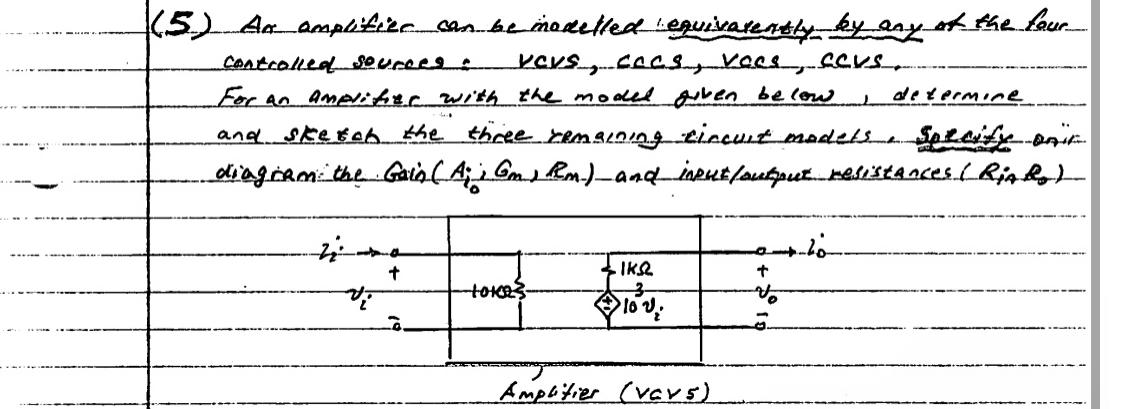 (5) An amplifier can be modelled equivalently by any of the four
controlled sources : VCVS, CCCS, VCCS, CCVS.
For an Amplifier with the model given below, determine
and sketch the three remaining circuit models. Specify on
diagram the Gain (Aio, Gm, Rm) and input/output resistances (Rin Ro)
ii
io
+
1KΩ
+
vi
10KΩ
10³ vi
vo
-
-
Amplifier (VCVS)